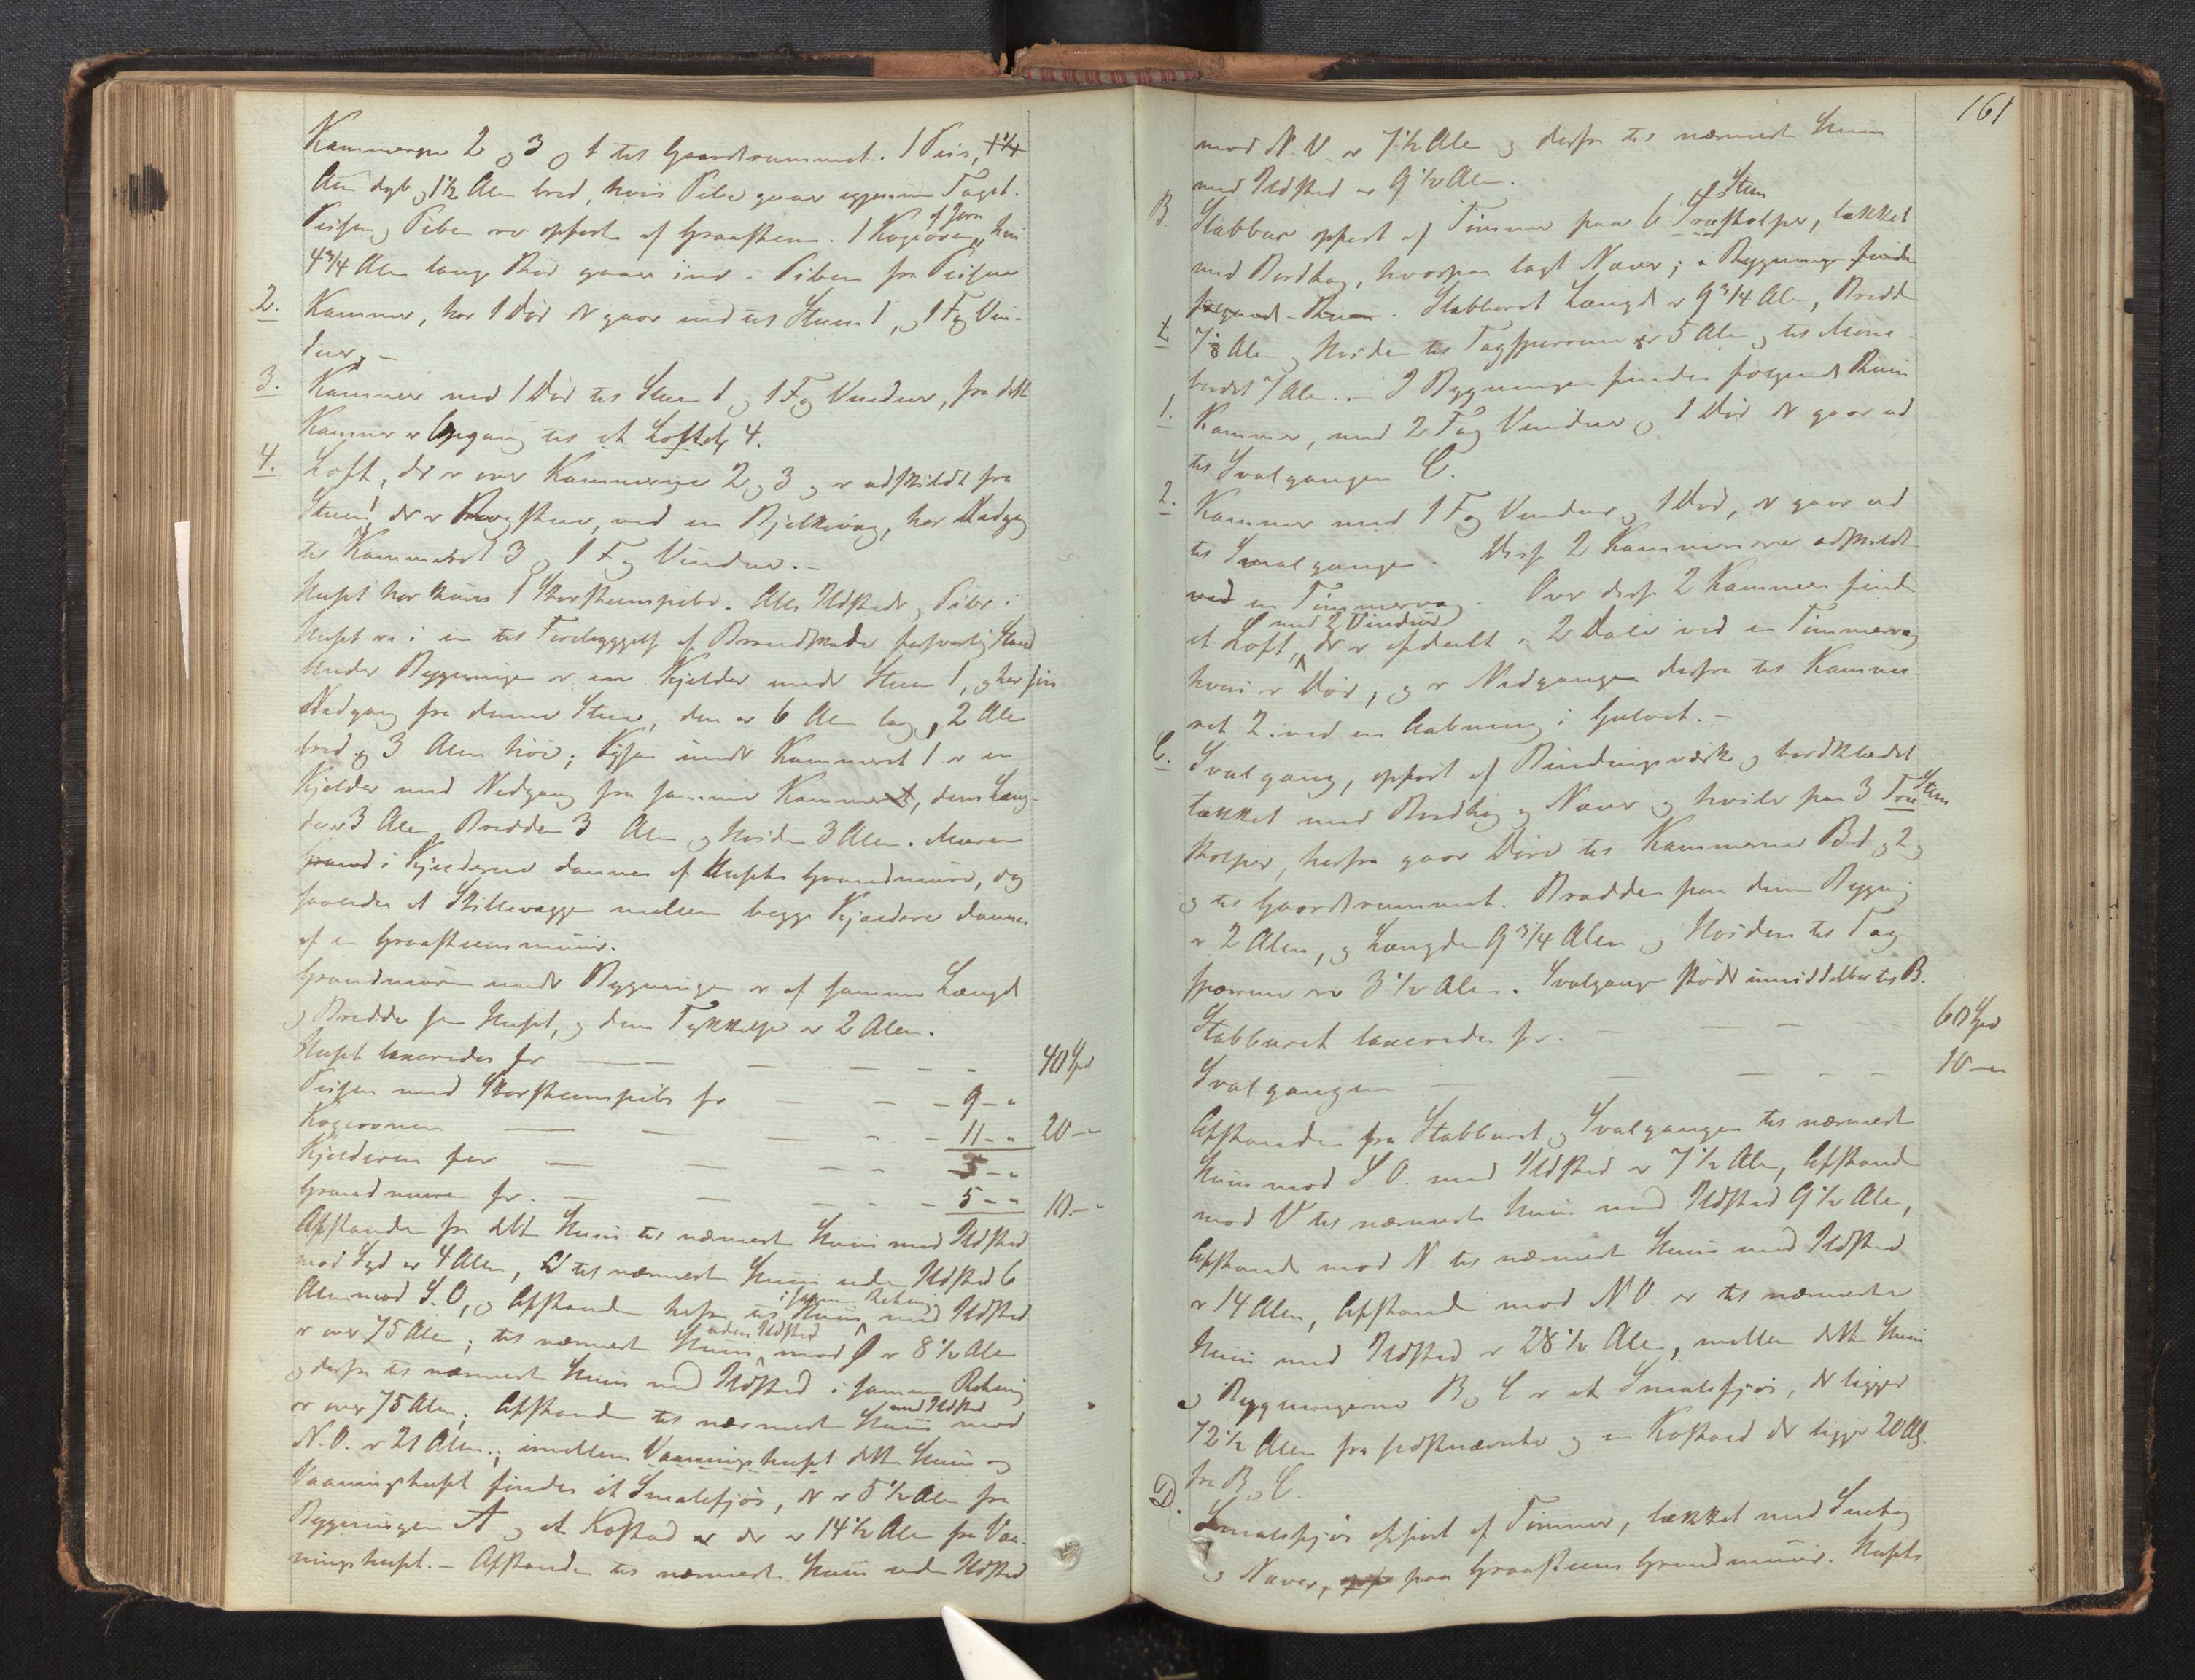 Kammerne 2 og 3 og 1 til Gaardsrummet. 1 Peis, 1 1/4
Alen dyb og 1 1/2 Alen bred, hvis Pibe gaaer igjennem Taget.
Peisen og Piben er opført af Graasteen. 1 Kogeovn af Jern, hvis
4 3/4 Alen lange Rør gaaer ind i Piben fra Peisen
2. Kammer, har 1 Dør der gaar ind til Stuen 1, og 1 Fag Vin-
duer. –
3. Kammer med 1 Dør til Stuen 1 og 1 Fag Vinduer, fra dette
Kammer er Opgang til et Loft 4.
4. Loft, der er over Kammerne 2 og 3 og er adskildt fra
Stuen 1, der er Røgstue, ved en Bjelkevæg, har Nedgang
til Kammeret 3 og 1 Fag Vinduer. –
Huset har kuns 1 Skorsteenspibe. Alle Ildsteder og Piber i
Huset er i en til Forebyggelse af Brandskade forsvarlig Stand
Under Bygningen er en Kjelder under Stuen 1, og har sin
Nedgang fra denne Stue, den er 6 Alen lang, 2 Alen
bred og 3 Alen høi; ligesaa under Kammeret 1 er en
Kjelder med Nedgang fra samme Kammer, dens Læng-
de er 3 Alen, Bredden 3 Alen og Høiden 3 Alen. Murene
i Kjelderne dannes af Husets Grundmure, og
saaledes at Skillevæggen mellem begge Kjeldere dannes
af en Graasteensmuur.
Grundmuren under Bygningen er af samme Længde
og Bredde som Huset, og dens Tykkelse er 2 Alen.
Huset taxeredes for — — — 40 Spd
Peisen med Skorsteenspibe for — — 9 – "
Kogeovnen — — — 11 – " 20 – "
Kjelderen for — — — 5 – "
Grundmuren for. — — — 5 – " 10. – "
Afstanden fra dette Huus til nærmeste Huus med Ildsted
mod Syd er 4 Alen, til nærmeste Huus uden Ildsted 6
Alen mod S.O, og Afstanden herfra til Huus i samme Retning med Ildsted
er over 75 Alen; til nærmeste Huus uden Ildsted mod Ø er 8 1/2 Alen
og derfra til nærmeste Huus med Ildsted i samme Retning
er over 75 Alen; Afstanden til nærmeste Huus med Ildsted mod
N.O. er 21 Alen.; imellem Vaaningshuset dette Huus og
Vaaningshuset findes et Smalefjøs, der er 5 1/2 Alen fra
Bygningen A og et Kostad der er 14 1/2 Alen fra Vaa-
ningshuset. – Afstanden til nærmeste Huus uden Ildsted
161
mod N.V. er 7 1/2 Alen og derfra til nærmeste Huus
med Ildsted er 9 1/2 Alen.
B. Stabbur opført af Timmer paa 6 Steen Træstolper, tækket
med Bordtag, hvorpaa lagt Næver; i Bygningen findes
følgende Rum. Stabburets Længde er 9 3/4 Alen, Bredde
7 Alen og Høiden til Tagsperrene er 5 Alen og til Møne-
bordet 7 Alen. – I Bygningen findes følgende Rum
1. Kammer, med 2 Fag Vinduer og 1 Dør der gaar ud
til Svalgangen C.
2. Kammer med 1 Fag Vinduer og 1 Dør, der gaar ud
til Svalgangen. Disse 2 Kammere ere adskildte
ved en Timmervæg. Over disse 2 Kammere findes
et Loft, med 2 Vinduer der er afdeelt i 2 Dele ved en Timmervæg
hvori er Dør, og er Nedgangen derfra til Kamme-
ret 2. ved en Aabning i Gulvet. –
C. Svalgang, opført af Bindingsværk og bordklædet
tækket med Bordtag og Næver og hviler paa 3 Steen Træ
stolper, herfra gaar Døre til Kammerne B 1 og 2 og
og til Gaardsrummet. Bredden paa denne Bygning
er 2 Alen, og Længden 9 3/4 Alen og Høiden til Tag
sperrene er 3 1/2 Alen. Svalgangen støder umiddelbar til B.
Stabburet taxeredes for. — — — 60 Spd
Svalgangen — — — 10 – "
Afstanden fra Stabburet og Svalgangen til nærmeste
Huus mod S.O. med Ildsted er 7 1/2 Alen, Afstanden
mod V til nærmeste Huus med Ildsted 9 1/2 Alen,
Afstanden mod N. til nærmeste Huus med Ildsted
er 14 Alen, Afstanden mod N.O. er til nærmeste
Huus med Ildsted er 28 1/2 Alen, mellem dette Huus
og Bygningerne B og C er et Smalefjøs, der ligger
72 1/2 Alen fra sidstnævnte og en Kostad der ligger 20 Al.
fra B og C.
D. Smalefjøs opført af Timmer, tækket med Suetag
og Næver, paa Graasteens Grundmuur. Husets